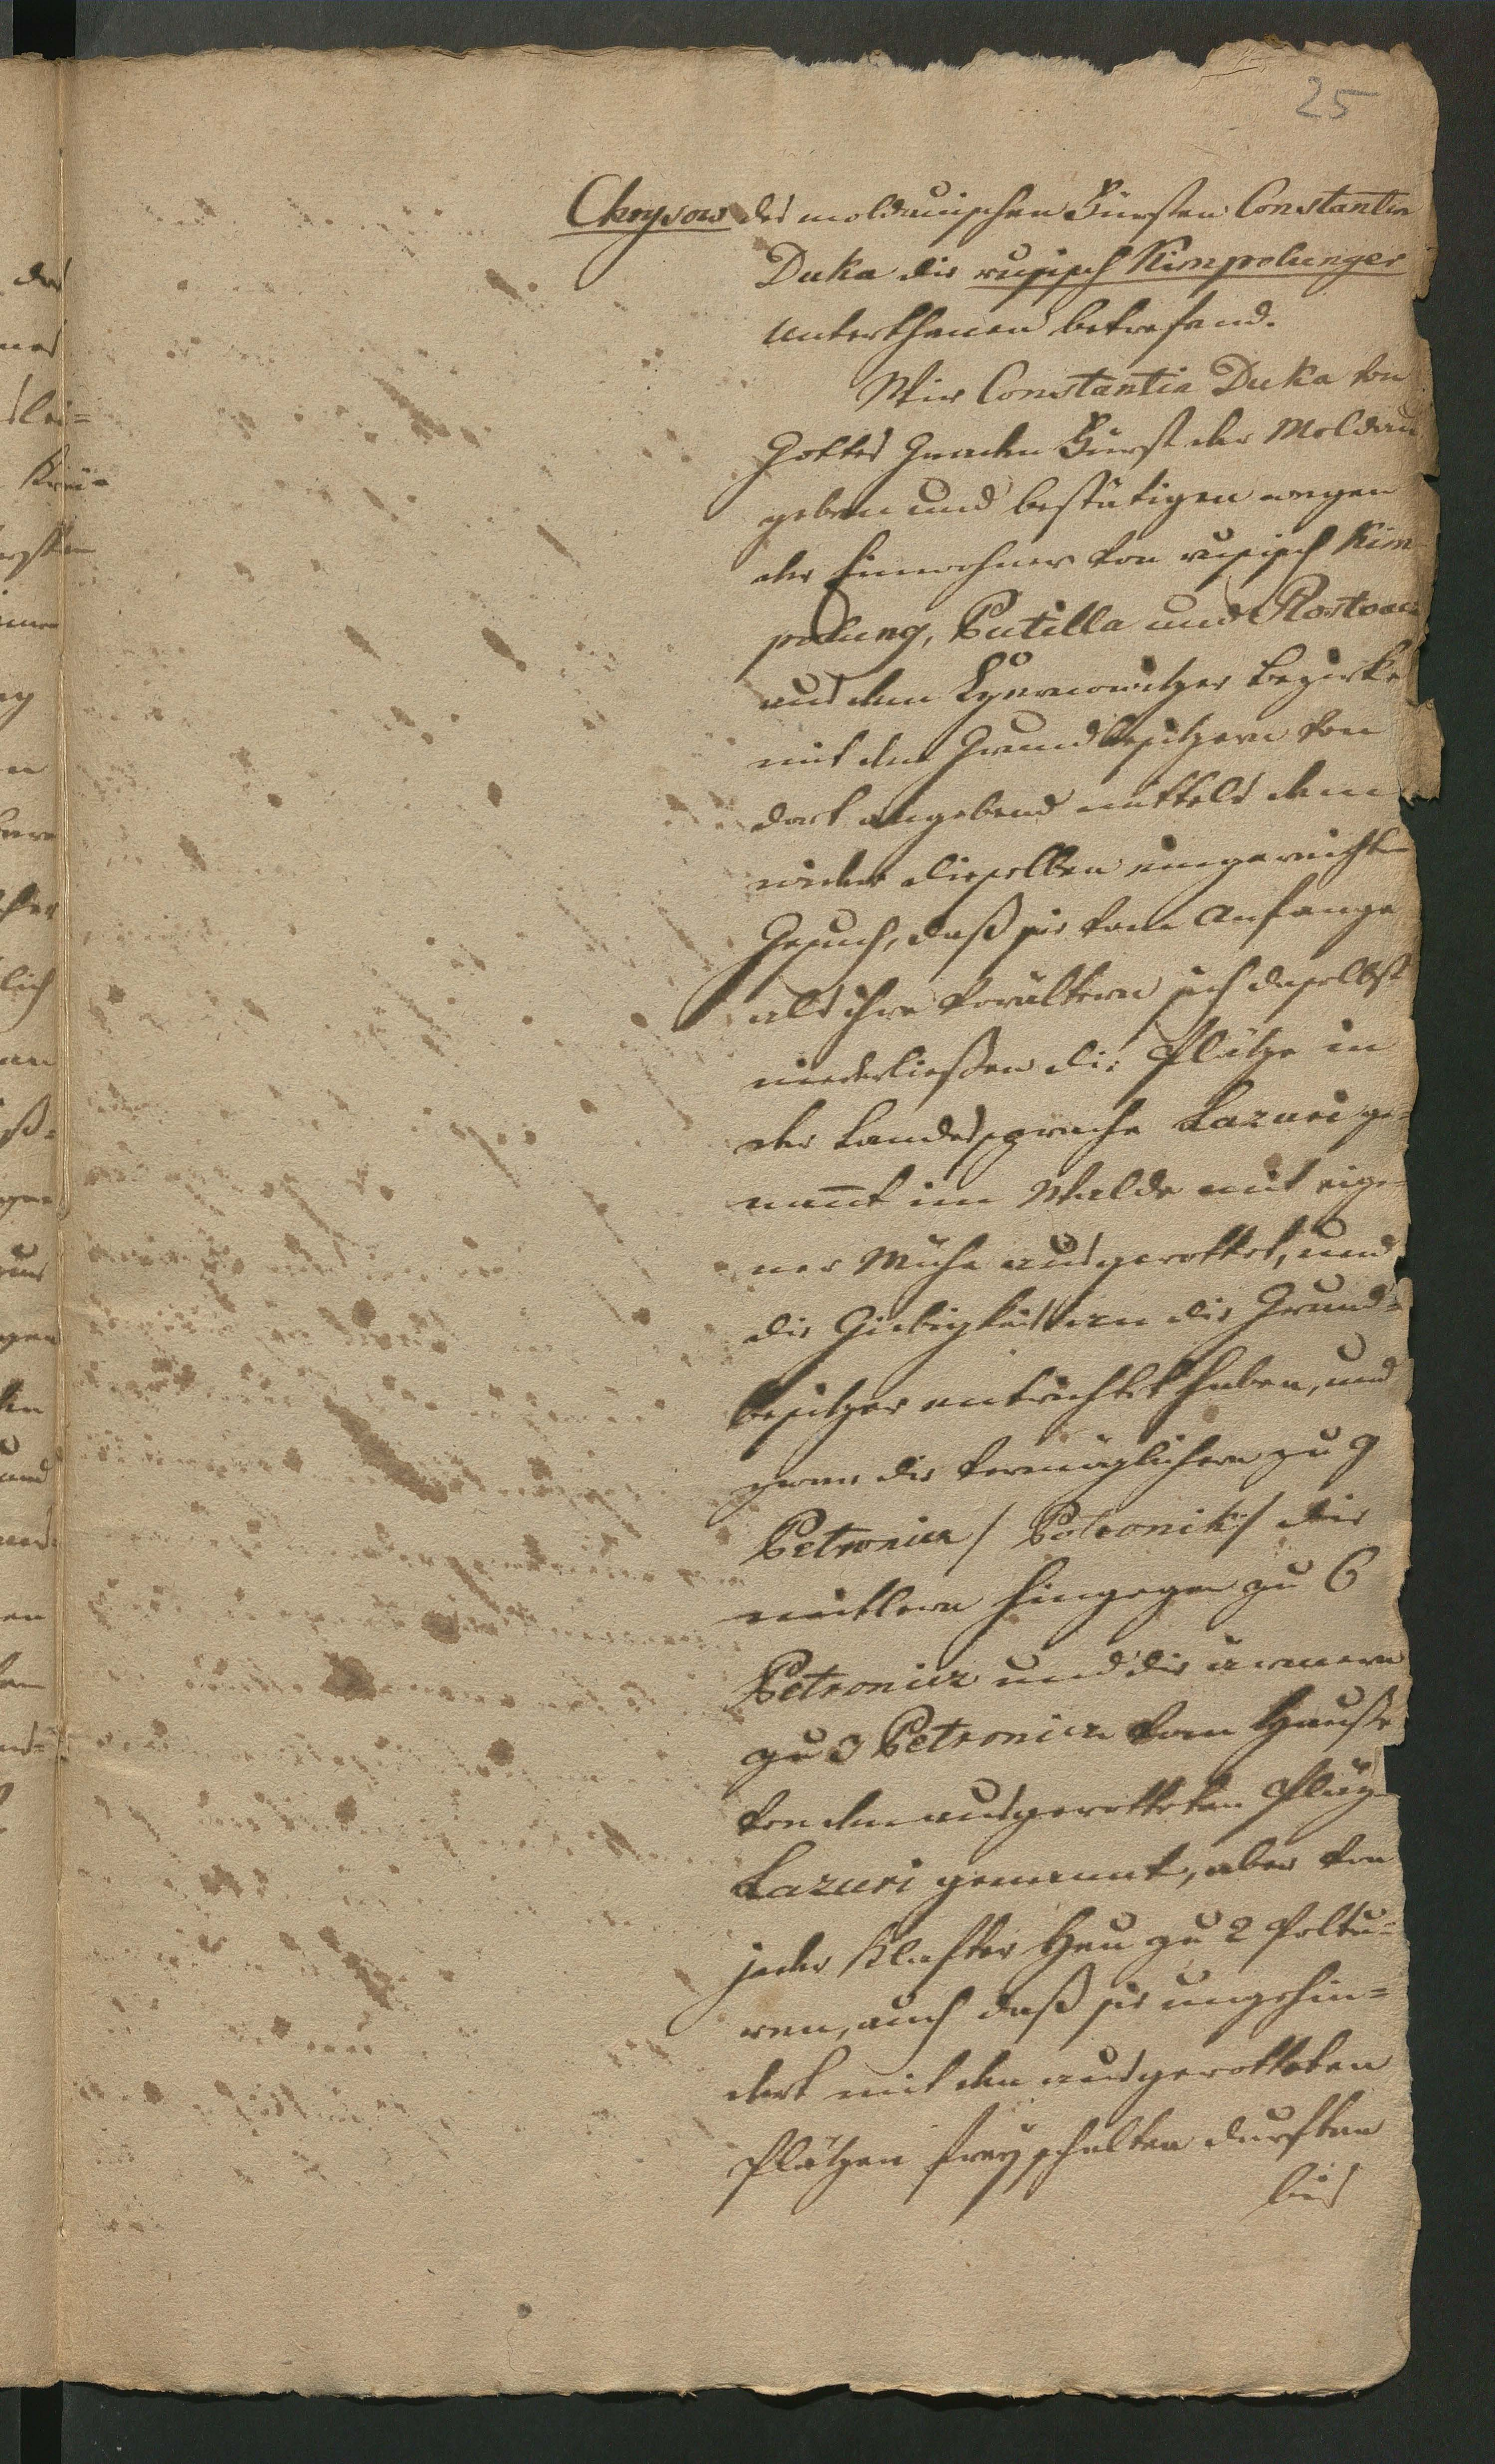 25
Chrysow des moldauischen Fürsten Constantin
Duka die rusisch Kimpolunger
Unterthanen betrefend.
Wir Constantin Duka von
Gottes Gnaden Fürst der Moldau
geben und bestätigen wegen
der Einwohner von rusisch Kim
polung, Putilla und Rostocz
aus dem Czernowitzer Bezirke
mit den Grundbesitzern von
dort angebend mittels dem
wider dieselben eingereichten
Gesuch, daß sie vom Anfange
als ihre Vorältern sich daselbst
niederließen die Plätze in
der Landessprache Lazuri ge-
nannt im Walde mit eige-
ner Mühe ausgerottet, und
die Giebigkeit an die Grund-
besitzer entrichtet haben, und
zwar die vermöglichern zu 9
Petronica / Potronik / die
mittlern hingegen zu 6
Petronica und die ärmern
zu 3 Petronica vom Hause
von den ausgerotteten Plätz
Lazuri genannt, aber von
jeder Klafter Heu zu 2 Poltu-
ren, auch daß sie ungehin-
dert mit den ausgerotteten
Plätzen frey schalten durften
bis